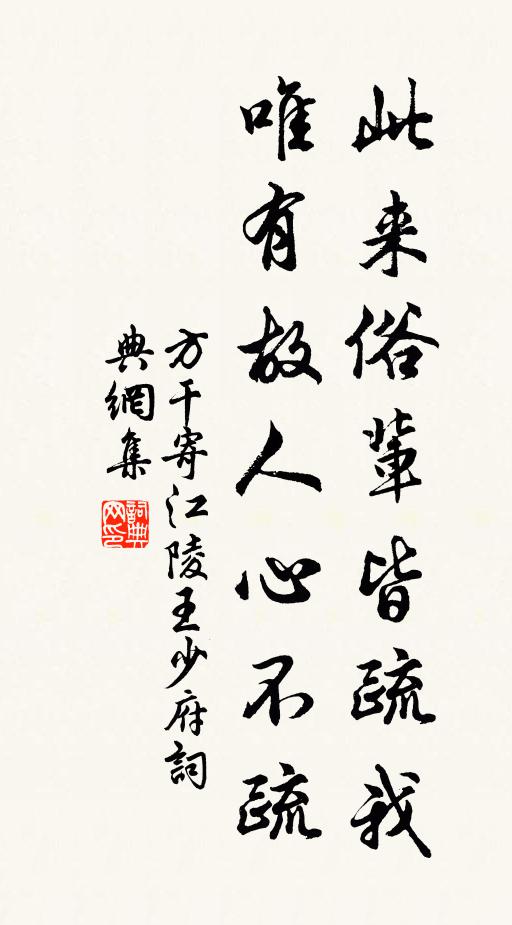 此来俗輩皆疏我
唯有故人心不疏
方干寄江陵王少府詞
典網集
詞典网印